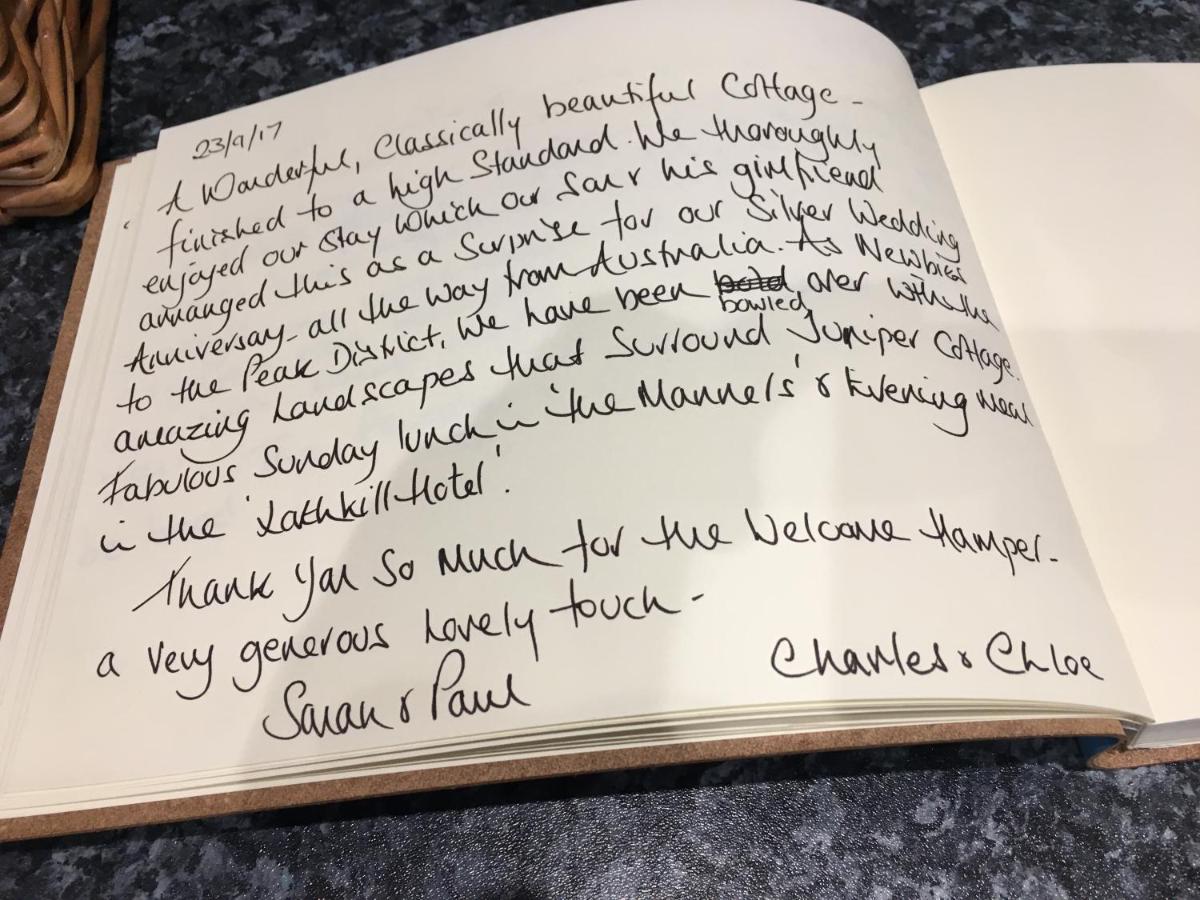 23/9/17
A Wonderful, Classically beautiful Cottage -
finished to a high Standard. We thoroughly
enjoyed our stay which our Son & his girlfriend
arranged this as a Surprise for our Silver Wedding
Anniversary - all the way from Australia. As Newbies
to the Peak District, We have been bowled over with the
amazing landscapes that Surround Juniper Cottage.
Fabulous Sunday lunch in 'the Manners' & Evening meal
in the 'Lathkill Hotel'.
Thank You So Much for the Welcome Hamper -
a very generous lovely touch -
Sarah & Paul
Charles & Chloe